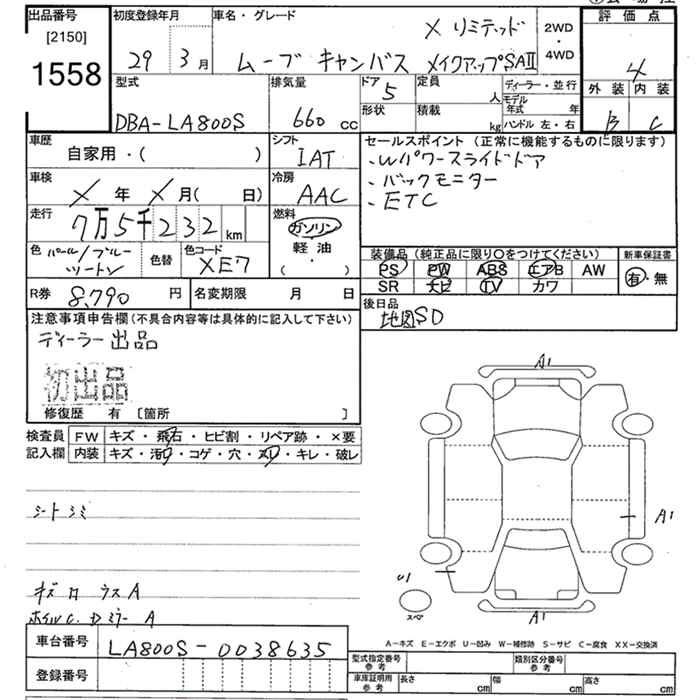 出品番号
[2150]
1558
初度登録年月
29 3 月
車名・グレード
X リミテッド
ムーブ キャンバス メイクアップSAⅡ
2WD
・
4WD
評価点
4
外装 内装
B C
型式
DBA-LA800S
排気量
660 cc
ドア
5
定員
人
形状
積載
kg
ディーラー・並行
モデル年式 年
ハンドル 左・右
車歴
自家用・( )
シフト
IAT
車検
X 年 X 月( 日)
冷房
AAC
走行
7万5千232 km
燃料
ガソリン
軽油
( ・ )
色 パール/ブルー
ツートン
色替
色コード
XE7
R券 8,790 円
名変期限 月 日
セールスポイント(正常に機能するものに限ります)
、Wパワースライドドア
、バックモニター
、ETC
装備品(純正品に限り○をつけてください)
PS PW ABS エアB AW
SR ナビ TV カワ
新車保証書
有・無
後日品
地図SD
注意事項申告欄(不具合内容等は具体的に記入して下さい)
ディーラー出品
初出品
修復歴 有 [箇所 ]
検査員
記入欄
FW キズ・飛石・ヒビ割・リペア跡・×要
内装 キズ・汚れ・コゲ・穴・スレ・キレ・破レ
シートシミ
キズ ロ ウスA
ホイルC. Dミラー A
A1
A1
U1
スペア
A1
A-キズ E-エクボ U-凹み W-補修跡 S-サビ C-腐食 XX-交換済
車台番号 LA800S-0038635
登録番号
型式指定番号
参考
類別区分番号
参考
車庫証明用
参考
長さ cm 幅 cm 高さ cm